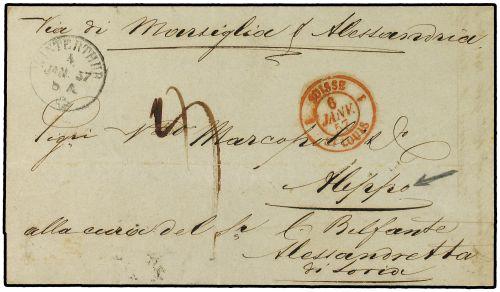 Via di Marsiglia & Alessandria
WINTERTHUR
4
JAN. 57
SUISSE
6
JANV.
57
Marcopoli & Co
Aleppo
alla cura del Sr C. Belfante
Alessandretta
di Soria